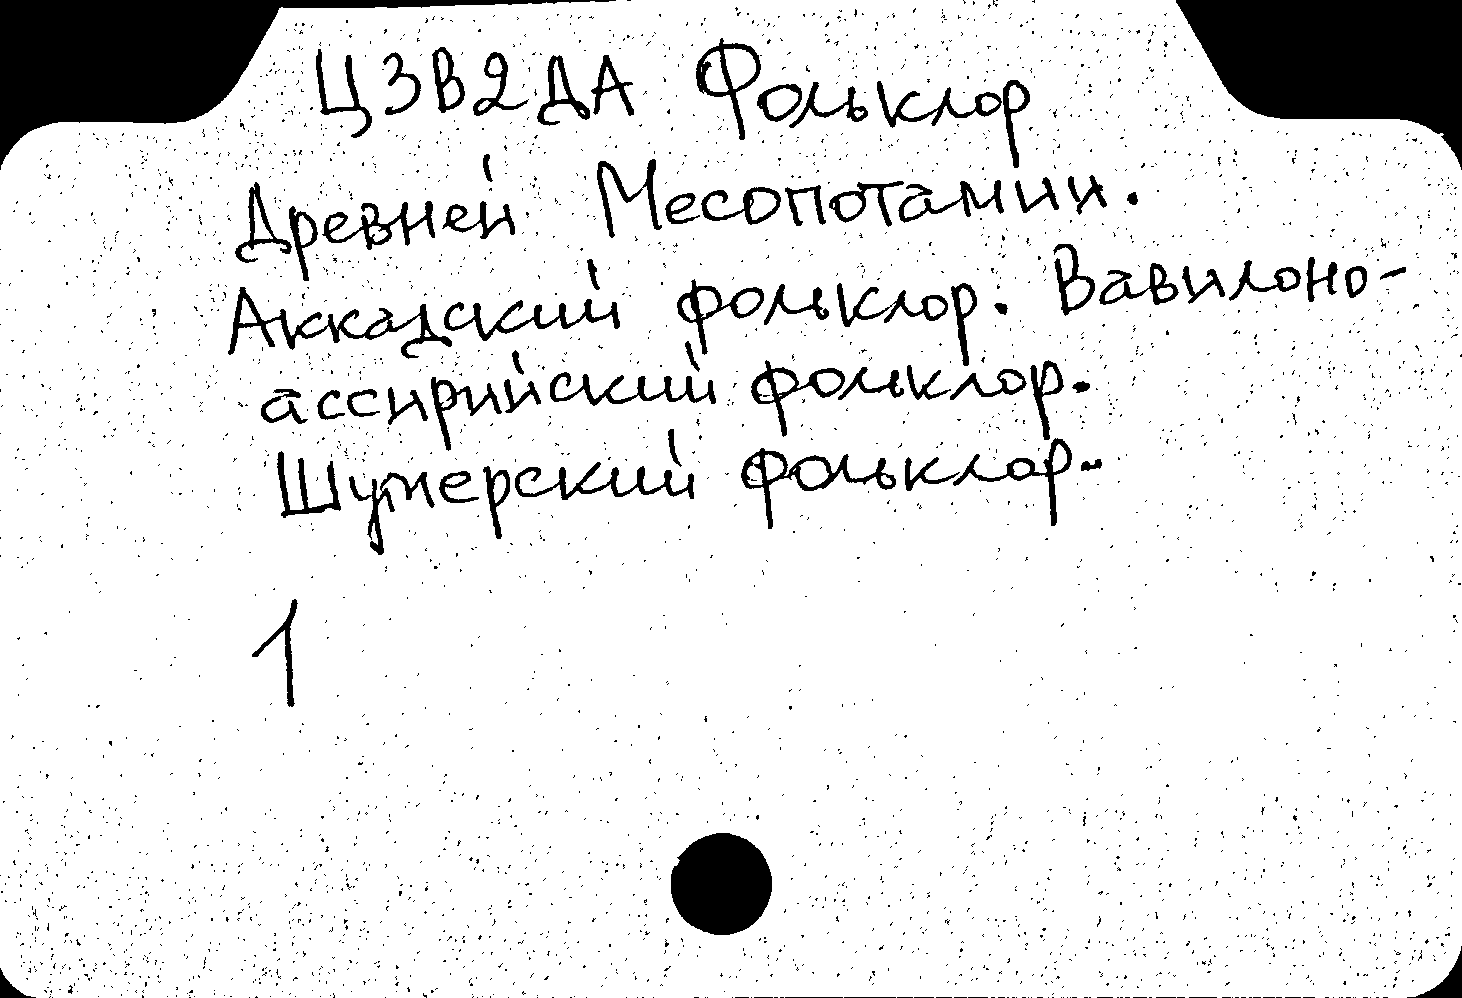 ЦЗВ2ДА Фольклор
Древней Месопотамии.
Аккадский фольклор. Вавилоно-
ассирийский фольклор.
Шумерский фольклор..
1